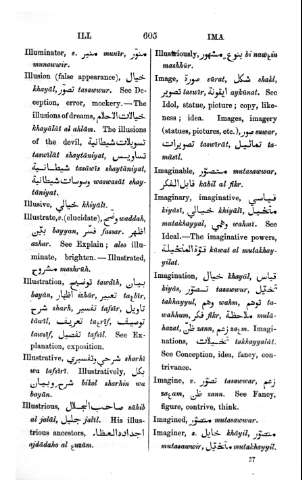 ILL 605 IMA
Illuminator, s. منير munīr, منوّر
munawwir.
Illusion (false appearance), خيال
khayāl, تصوّر tasawwur. See De-
ception, error, mockery.—The
illusions of dreams, خيالات الاحلام
khayālāt al ahlām. The illusions
of the devil, تسويلات شيطانية
taswīlāt shaytāniyat, تساويس
شيطانية tasāwīs shaytāniyat,
وسوسات شيطانية waswasāt shay-
tāniyat.
Illusive, خيالي khiyālī.
Illustrate, v. (elucidate), وضح waddah,
بيّن bayyan, فسّر fassar, اظهر
azhar. See Explain; also illu-
minate, brighten.—Illustrated,
مشروح mashrūh.
Illustration, توضيح tawdīh, بيان
bayān, اظهار izhār, تعبير
شرح sharh, تفسير tafsīr, تاويل
tāwīl, تعريف taʿrīf, توصيف
tawsīf, تفضيل tafdīl. See Ex-
planation, exposition.
Illustrative, شرحي وتفسيري sharhī
wa tafsīrī. Illustratively, بكل
شرح وبيان bikul sharhin wa
bayān.
Illustrious, صاحب الجلال sāhib
al jalāl, جليل jalīl. His illus-
trious ancestors, اجداده العظام
ajdādaho al
Illustriously, بنوع مشهور bi nawʿin
mashhūr.
Image, صورة sūrat, شكل shakl,
تصوير taswīr, ايقونة aykūnat. See
Idol, statue, picture; copy, like-
ness; idea. Images, imagery
(statues, pictures, etc.), صور suwar,
تصويرات taswīrāt, تماثيل ta-
māsīl.
Imaginable, متصوّر mutasawwar,
قابل الفكر kābil al fikr.
Imaginary, imaginative, قياسي
kiyāsī, خيالي khiyālī, متخيّل
mutakhayyal, وهمي wahmī. See
Ideal.—The imaginative powers,
قوّة المتخيلة kūwat al mutakhay-
yilat.
Imagination, خيال khayāl, قياس
kiyās, تصوّر tasawwur, تخيّل
takhayyul, وهم wahm, توهّم ta-
wahhum, فكر fikr, ملاحظة mulā-
hazat, ظن zann, زعم zaʿm. Imagi-
nations, تخيلات takhayyalāt.
See Conception, idea, fancy, con-
trivance.
Imagine, v. تصوّر tasawwar, زعم
zaʿam, ظن zann. See Fancy,
figure, contrive, think.
Imagined, متصوّر mutasawwar.
Imaginer, s. خايل khāyil, متصوّر
mutasawwir, متخيّل mutakhayyil.
27